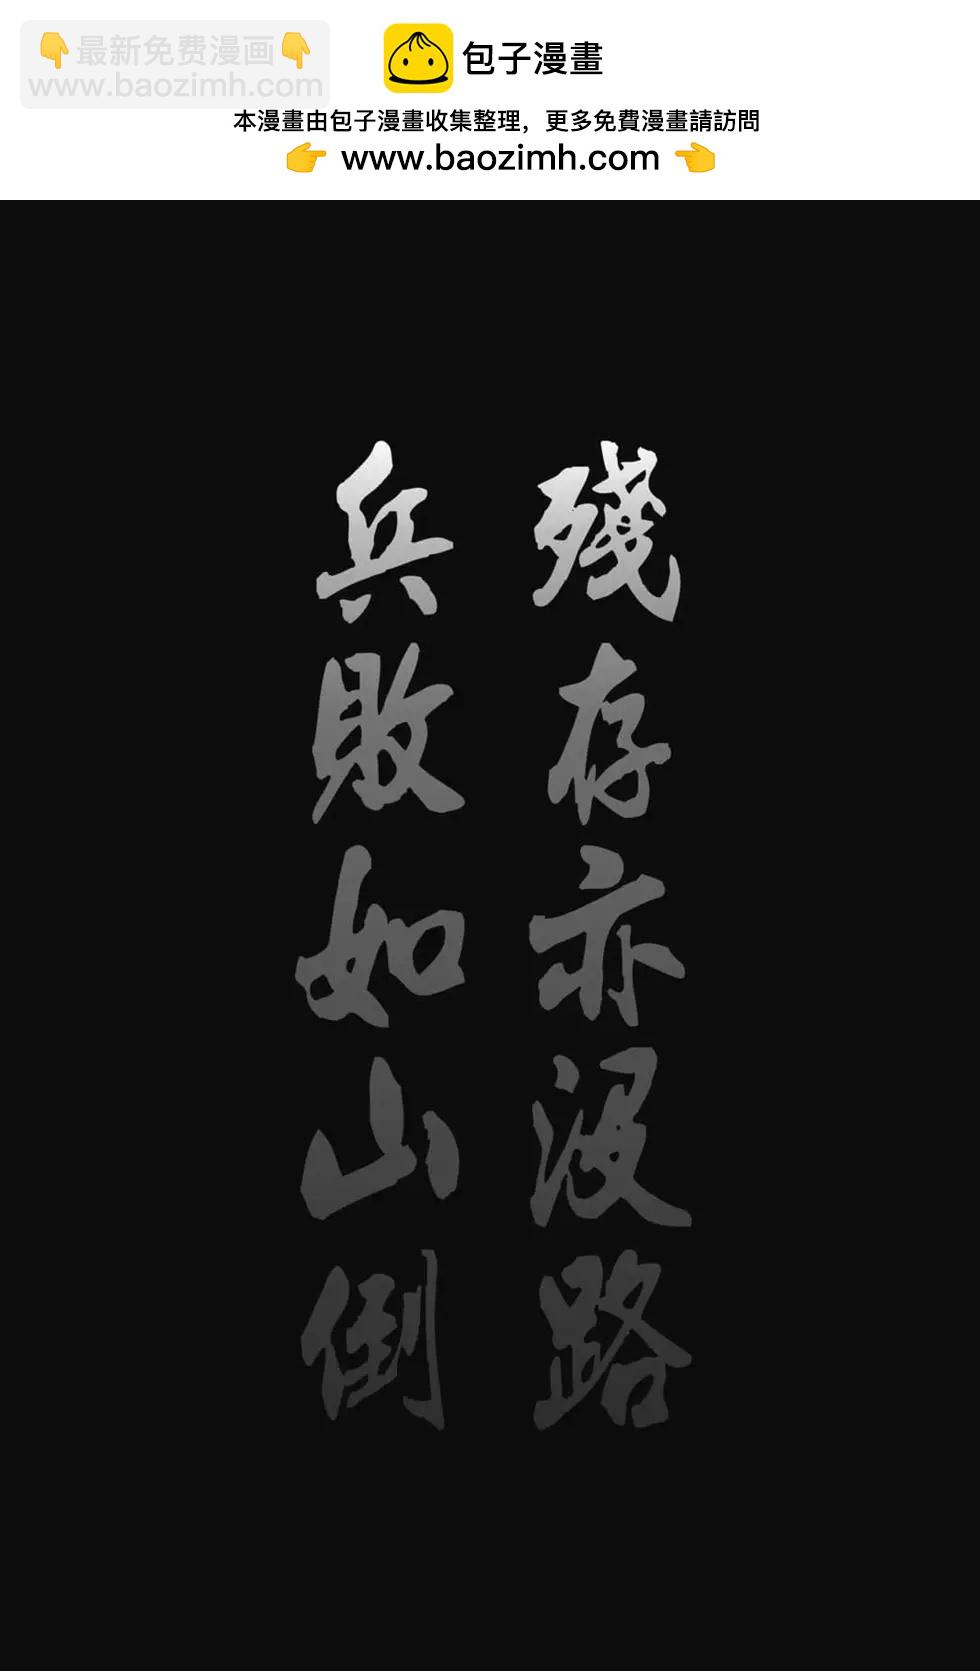 👇最新免费漫画👇
www.baozimh.com
包子漫畫
本漫畫由包子漫畫收集整理，更多免費漫畫請訪問
👉 www.baozimh.com 👈
殘存亦沒路
兵敗如山倒